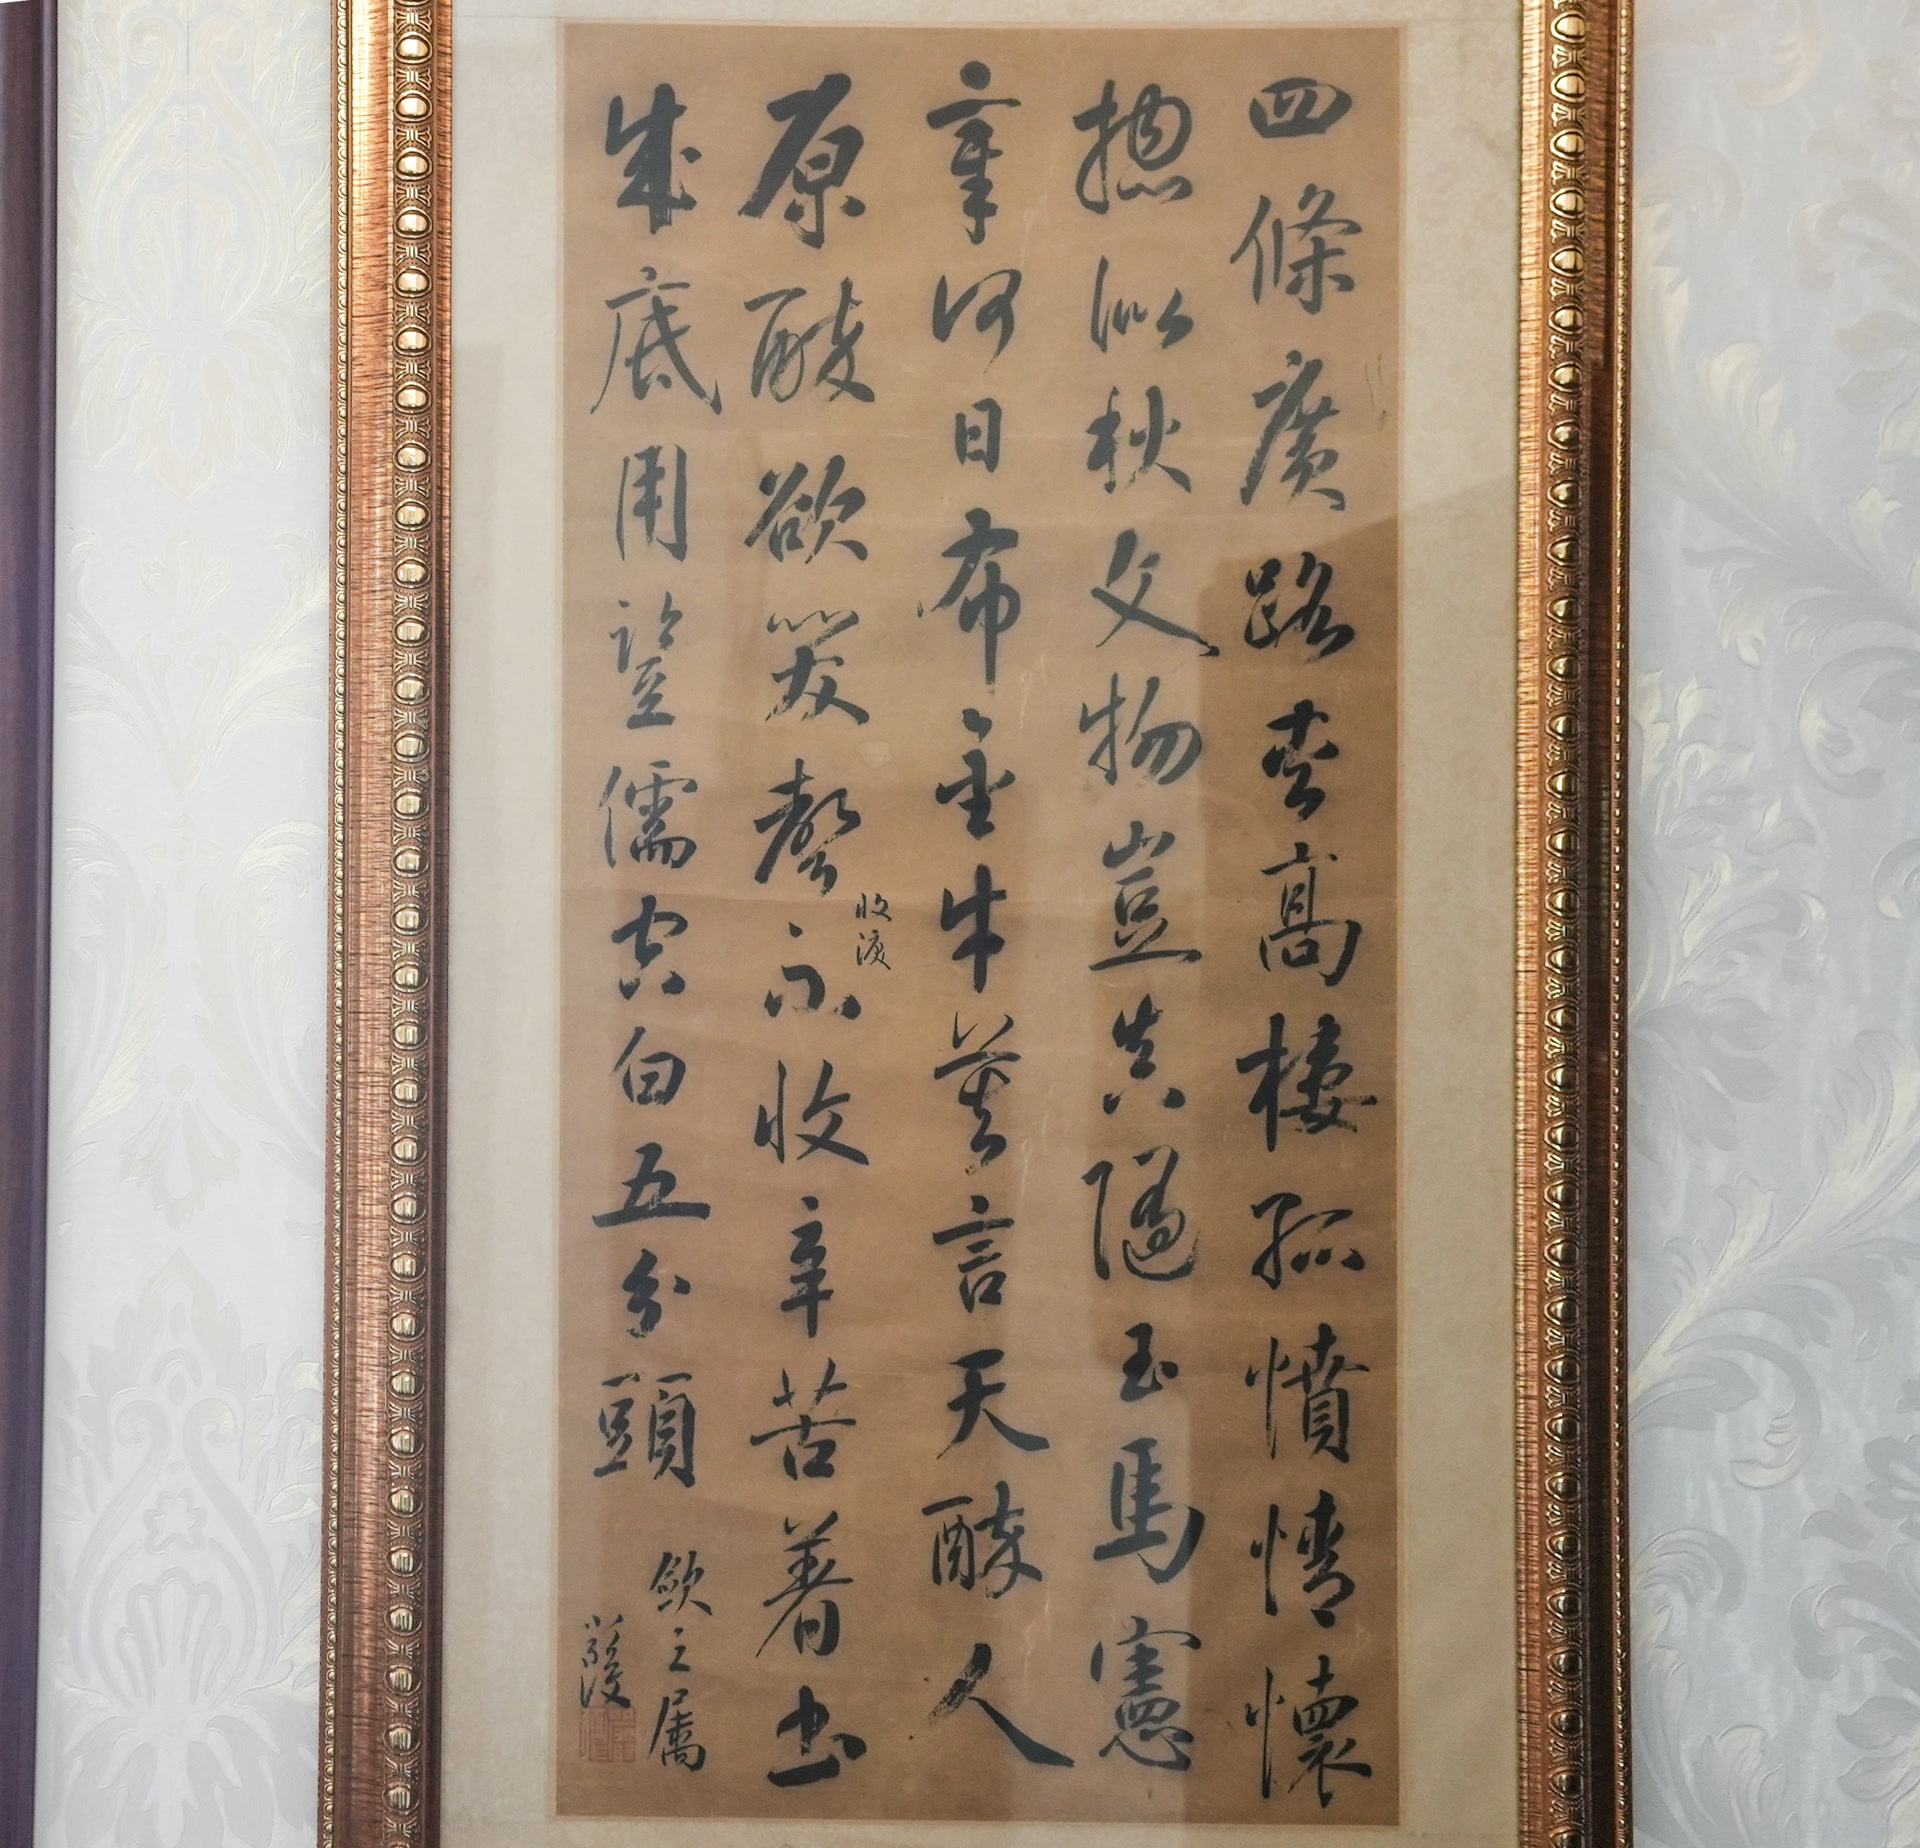 四條廣路夾高樓孤憤情懷
總似秋文物豈真隨玉馬憲
章何日布金牛莫言天醉人
原醉欲哭聲不收辛苦著書
收淚
成底用豎儒空白五分頭
欽之屬
嚴復